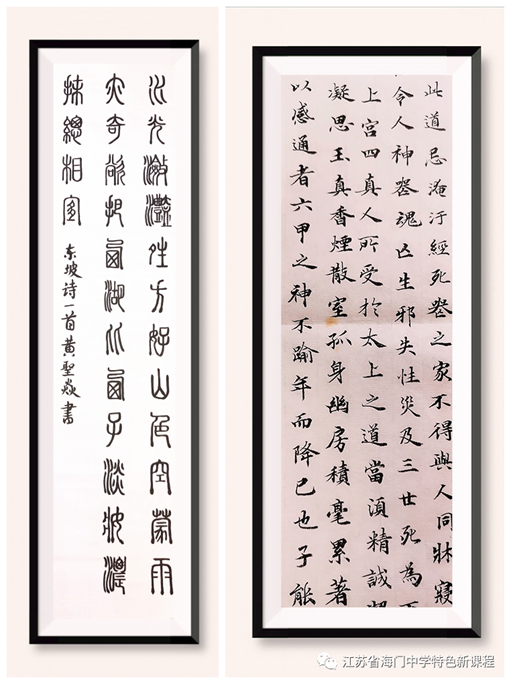 水光瀲灩晴方好山色空蒙雨
亦奇欲把西湖比西子淡妝濃
抹總相宜
东坡诗一首黄聖焱書
此道忌淹汙經死喪之家不得與人同牀寢
令人神喪魂亡生邪失性災及三世死為下
上宮四真人所受於太上之道當須精誠
凝思玉真香煙散室孤身幽房積毫累著
以感通者六甲之神不踰年而降已也子能
江苏省海门中学特色新课程